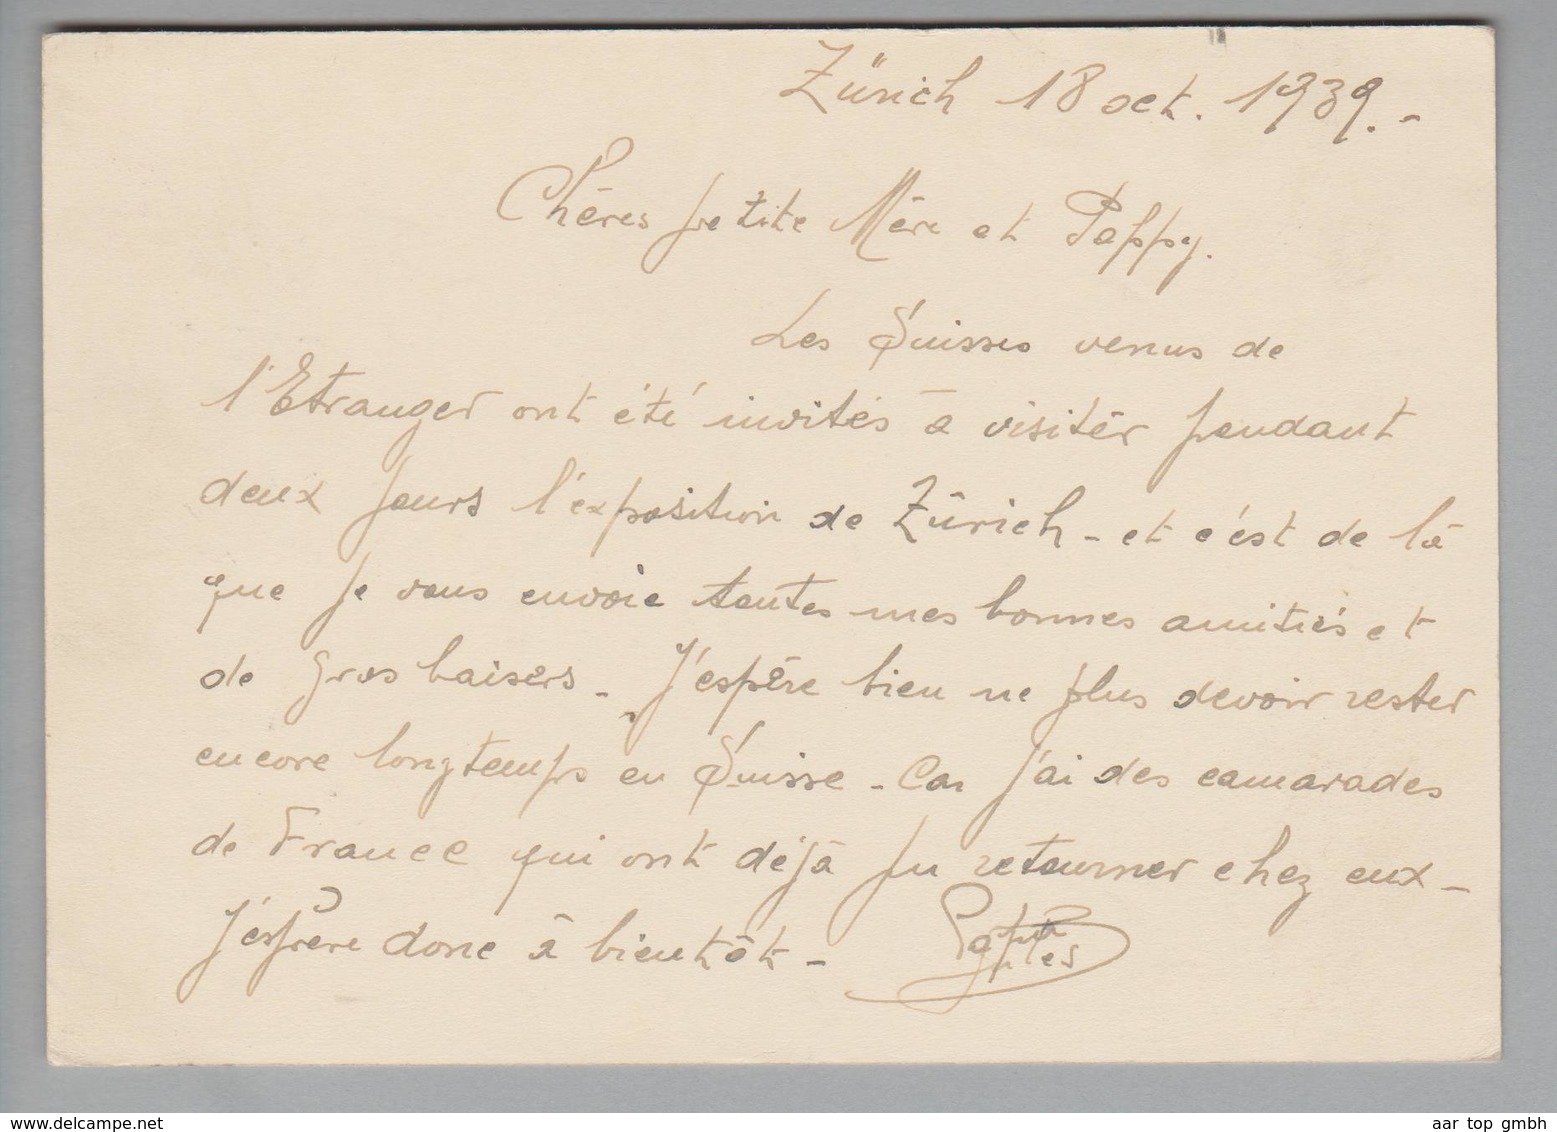 Zürich 18 oct. 1939.-
Chères petite Mère et Pappy.
Les Suisses venus de
l'Etranger ont été invités à visiter pendant
deux jours l'exposition de Zürich - et c'est de là
que je vous envoie toutes mes bonnes amitiés et
de gros baisers - J'espère bien ne plus devoir rester
encore longtemps en Suisse - Car j'ai des camarades
de France qui ont déjà pu retourner chez eux -
J'espère donc à bientôt -
www.delcampe.net
aar top gmbh